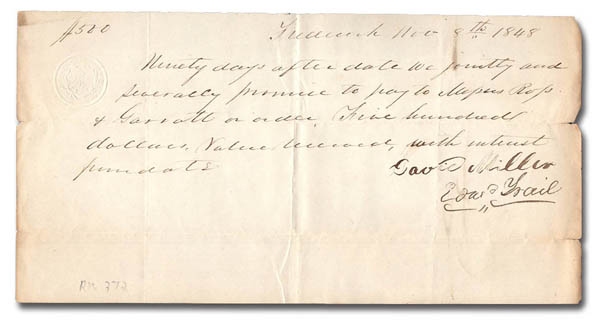 $500 Frederick Nov 8th 1848
Ninety days after date we jointly and
severally promise to pay to Messrs Ross
& Garrott or order, Five hundred
dollars, Value received, with interest
from date
David Miller
Edwd Trail
RN 372